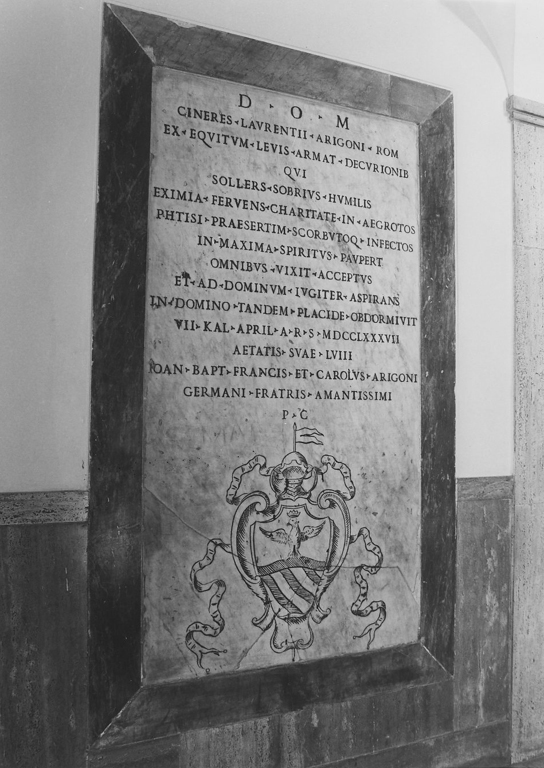 D ‣ O ‣ M
CINERES ‣ LAVRENTII ‣ ARIGONI ‣ ROM
EX ‣ EQVITVM ‣ LEVIS ‣ ARMAT ‣ DECVRIONIB
QVI
SOLLERS ‣ SOBRIVS ‣ HVMILIS
EXIMIA ‣ FERVENS ‣ CHARITATE ‣ IN ‣ AEGROTOS
PHTISI ‣ PRAESERTIM ‣ SCORBVTOQ ‣ INFECTOS
IN ‣ MAXIMA ‣ SPIRITVS ‣ PAVPERT
OMNIBVS ‣ VIXIT ‣ ACCEPTVS
ET ‣ AD ‣ DOMINVM ‣ IVGITER ‣ ASPIRANS
IN ‣ DOMINO ‣ TANDEM ‣ PLACIDE ‣ OBDORMIVIT
VII ‣ KAL ‣ APRIL ‣ A ‣ R ‣ S ‣ MDCCLXXXVII
AETATIS ‣ SVAE ‣ LVIII
IOAN ‣ BAPT ‣ FRANCIS ‣ ET ‣ CAROLVS ‣ ARIGONI
GERMANI ‣ FRATRIS ‣ AMANTISSIMI
P ‣ C